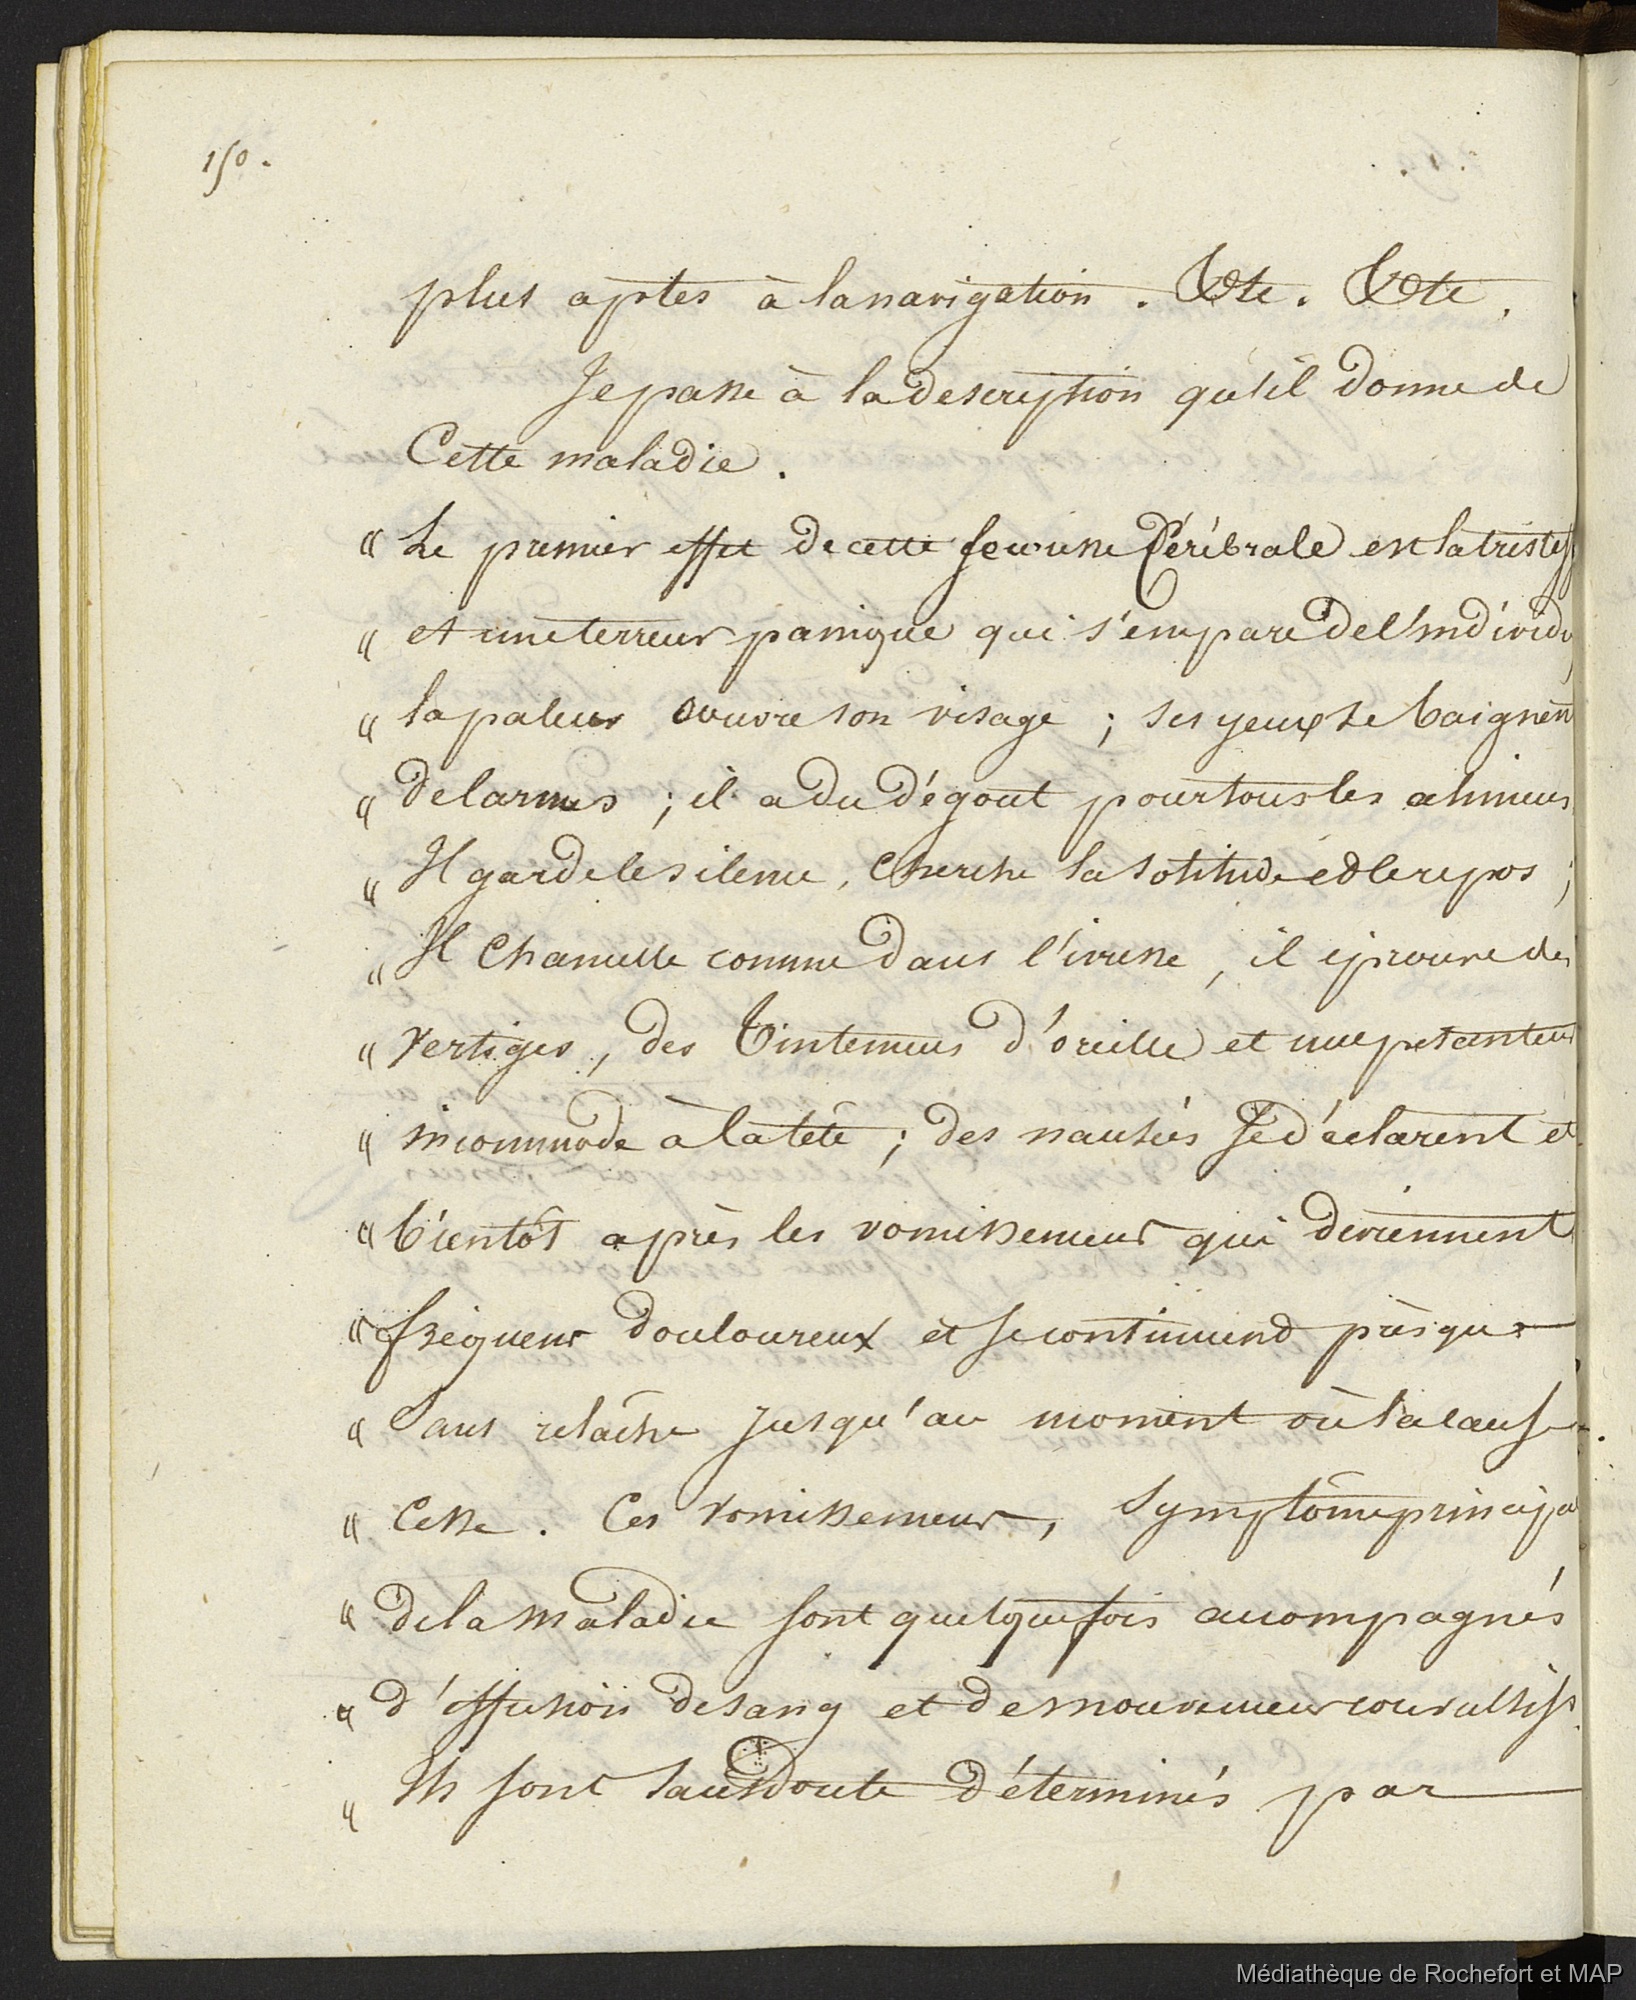 150.
plus aptes à la navigation. &te. &te.
Je passe à la description qu'il donne de
Cette maladie.
" Le premier effet de cette secousse Cérébrale est la tristess
" et une terreur panique qui s'empare de l'individu
" la paleur couvre son visage ; ses yeux se baignent
" de larmes ; il a du dégout pour tous les alimens
" Il garde le silence, Cherche la solitude et le repos ;
" Il Chancelle comme dans l'ivresse, il éprouve des
" Vertiges, des Tintemens d'oreille et une pesanteur
" incommode à la tête ; des nausées se déclarent et
" bientôt après les vomissemens qui deviennent
" fréquens douloureux et se continuend presque
" Sans relâche jusqu'au moment où sa cause
" Cesse. Ces vomissemens, Symptôme principal
" de la Maladie sont quelquefois accompagnés
" d'effusion de sang et de mouvemens convulsifs.
" Ils sont sans doute déterminés par
Médiathèque de Rochefort et MAP